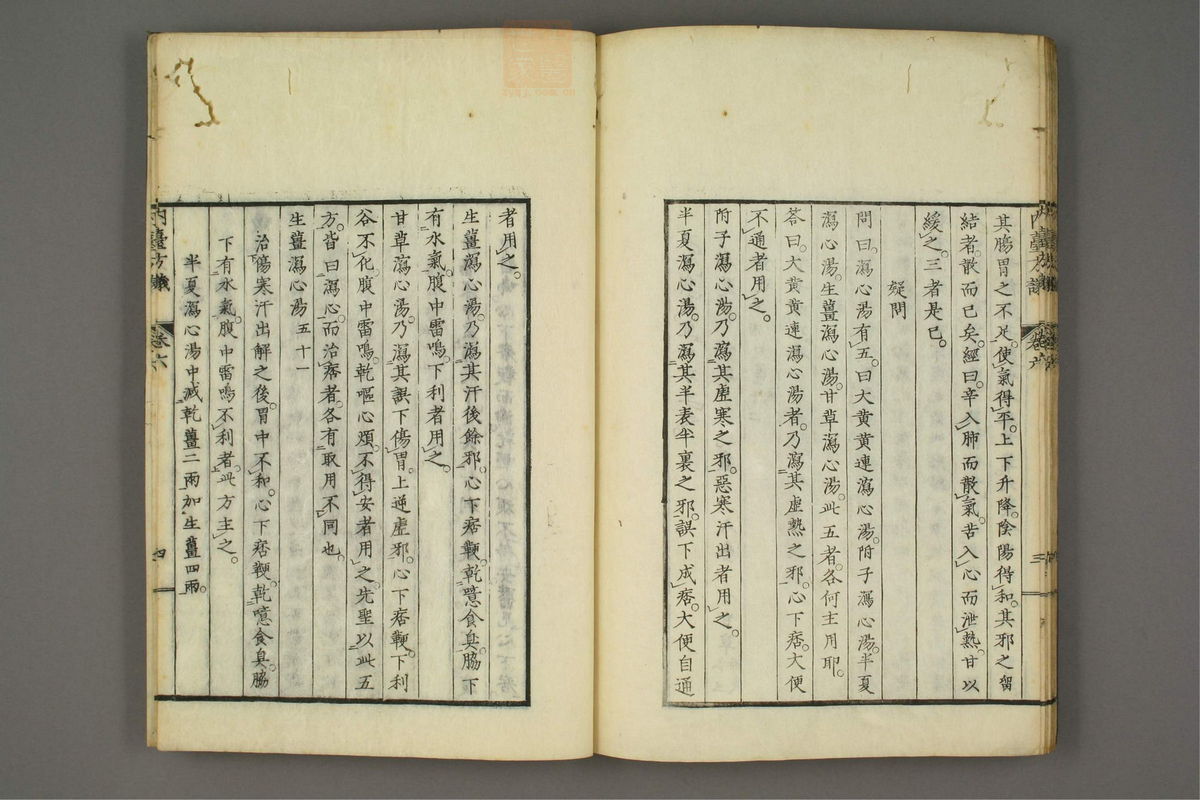 其腸胃之不足。使氣得平。上下升降。陰陽得和。其邪之留
結者。散而已矣。經曰。辛入肺而散氣。苦入心而泄熱。甘以
緩之。三者是已。
疑問
問曰。瀉心湯有五。曰大黃黃連瀉心湯。附子瀉心湯。半夏
瀉心湯。生薑瀉心湯。甘草瀉心湯。此五者。各何主用耶。
答曰。大黃黃連瀉心湯者。乃瀉其虛熱之邪。心下痞。大便
不通者用之。
附子瀉心湯。乃瀉其虛寒之邪。惡寒汗出者用之。
半夏瀉心湯。乃瀉其半表半裏之邪。誤下成痞。大便自通
內臺方議 卷六 三
者用之。
生薑瀉心湯。乃瀉其汗後餘邪。心下痞鞕。乾噫食臭。脇下
有水氣。腹中雷鳴。下利者用之。
甘草瀉心湯。乃瀉其誤下傷胃。上逆虛邪。心下痞鞕。下利
谷不化。腹中雷鳴。乾嘔心煩。不得安者用之。先聖以此五
方。皆曰瀉心。而治痞者。各有取用不同也。
生薑瀉心湯 五十一
治傷寒汗出解之後。胃中不和。心下痞鞕。乾噫食臭。脇
下有水氣。腹中雷鳴不利者。此方主之。
半夏瀉心湯中減乾薑二兩加生薑四兩。
內臺方議 卷六 四